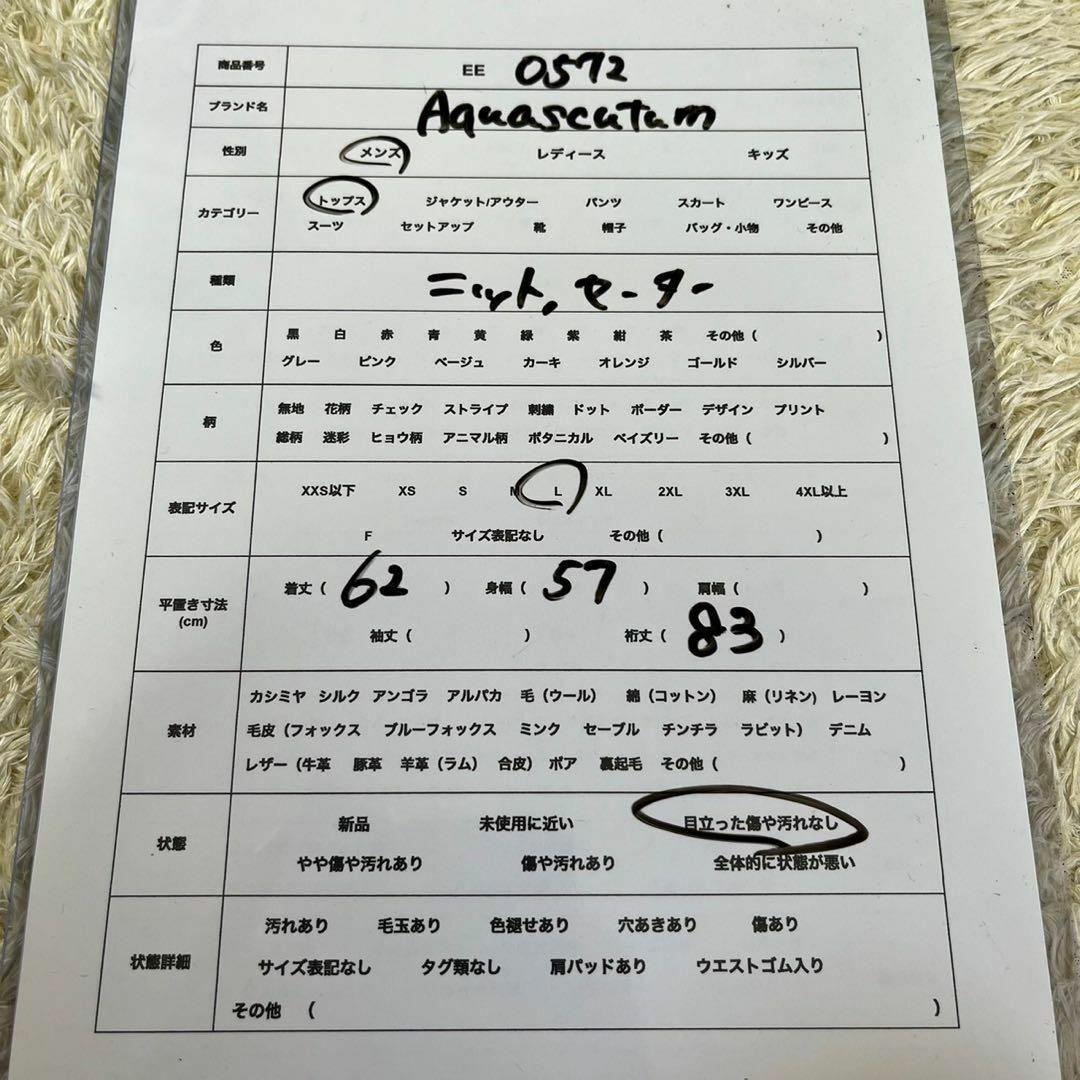 商品番号 EE 0572
ブランド名 Aquascutum
性別 メンズ レディース キッズ
カテゴリー トップス ジャケット/アウター パンツ スカート ワンピース
スーツ セットアップ 靴 帽子 バッグ・小物 その他
種類 ニット,セーター
色 黒 白 赤 青 黄 緑 紫 紺 茶 その他 ( )
グレー ピンク ベージュ カーキ オレンジ ゴールド シルバー
柄 無地 花柄 チェック ストライプ 刺繍 ドット ボーダー デザイン プリント
総柄 迷彩 ヒョウ柄 アニマル柄 ボタニカル ペイズリー その他 ( )
表記サイズ XXS以下 XS S M L XL 2XL 3XL 4XL以上
F サイズ表記なし その他 ( )
平置き寸法 (cm) 着丈 ( 62 ) 身幅 ( 57 ) 肩幅 ( )
袖丈 ( ) 裄丈 ( 83 )
素材 カシミヤ シルク アンゴラ アルパカ 毛 (ウール) 綿 (コットン) 麻 (リネン) レーヨン
毛皮 (フォックス ブルーフォックス ミンク セーブル チンチラ ラビット) デニム
レザー (牛革 豚革 羊革 (ラム) 合皮) ボア 裏起毛 その他 ( )
状態 新品 未使用に近い 目立った傷や汚れなし
やや傷や汚れあり 傷や汚れあり 全体的に状態が悪い
状態詳細 汚れあり 毛玉あり 色褪せあり 穴あきあり 傷あり
サイズ表記なし タグ類なし 肩パッドあり ウエストゴム入り
その他 ( )